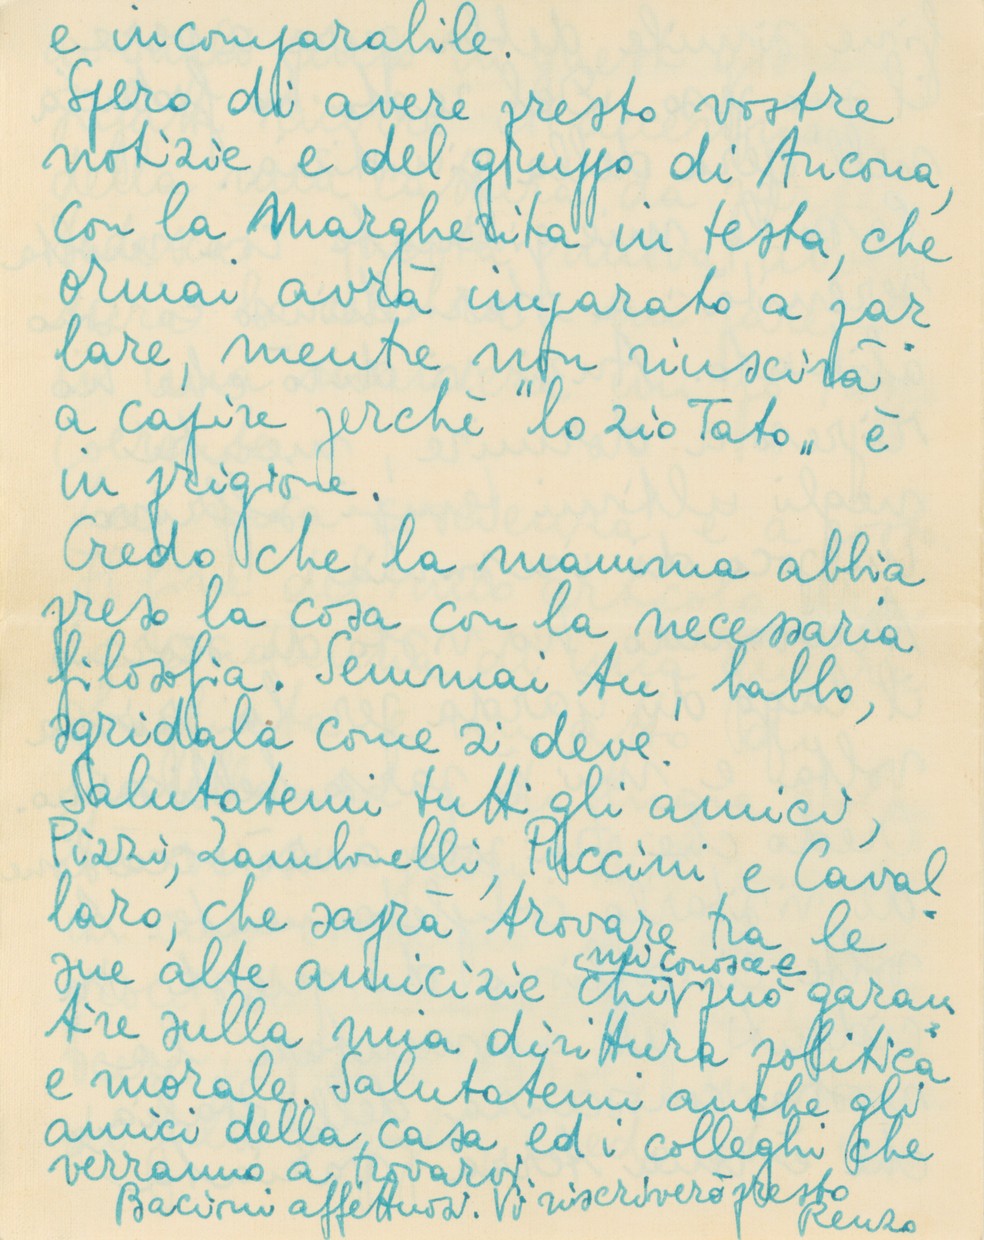 e incomparabile.
Spero di avere presto vostre
notizie e del gruppo di Ancona,
con la Margherita in testa, che
ormai avrà imparato a par
lare, mentre non riuscirà
a capire perchè "lo zio Tato„ è
in prigione.
Credo che la mamma abbia
preso la cosa con la necessaria
filosofia. Semmai tu, babbo,
sgridala come si deve.
Salutatemi tutti gli amici,
Pizzi, Zambonelli, Puccini e Caval
laro, che saprà trovare tra le
mi conosce e
sue alte amicizie chi può garan
tire sulla mia dirittura politica
e morale. Salutatemi anche gli
amici della casa ed i colleghi che
verranno a trovarvi.
Bacioni affettuosi. Vi riscriverò presto
Renzo